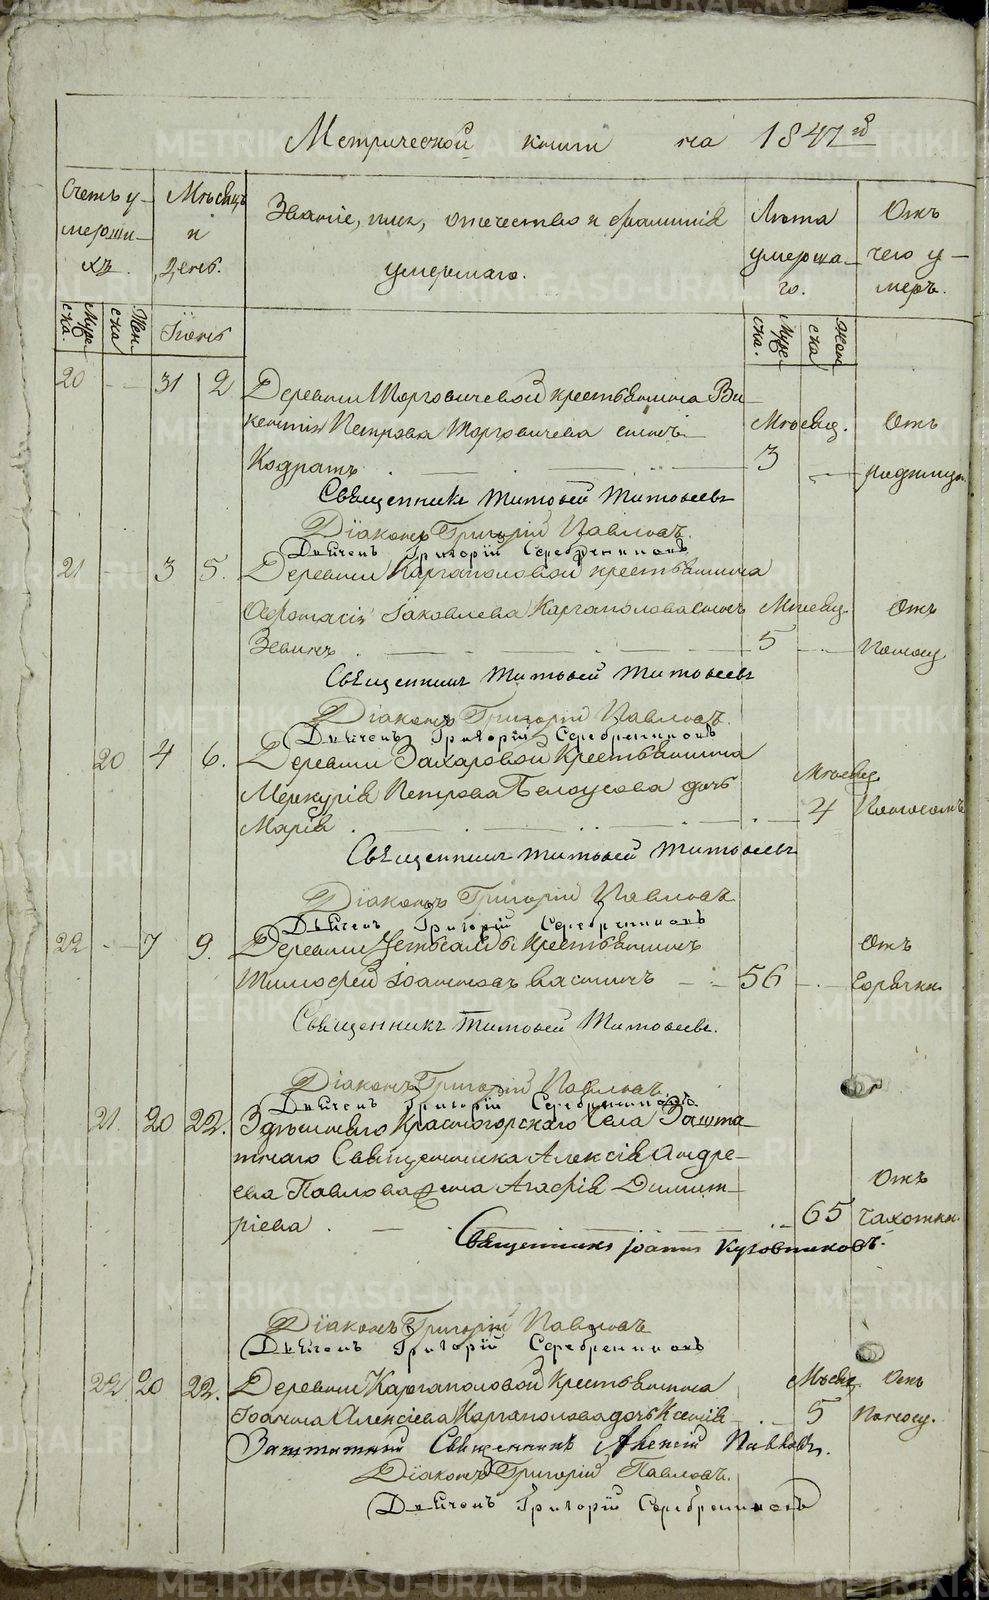 Метрической книги на 1847 й
Счетъ у-
мерши-
хъ.
Мѣсяцъ
и
день.
Званіе, имя, отечество и фамилія
умершаго.
Лѣта
умерша-
го.
Отъ
чего у-
меръ.
Муже-
ска.
Жен-
ска
Іюнь
Муже-
ска.
Жен-
ска
20 31 2 Деревни Торговичевой крестьянина Ви-
кентія Петрова Торговичева сынъ Мѣсяц. Отъ
Кодратъ 3
Священникъ Титовей Титовеевъ
Діаконъ Григорій Павловъ.
Дьячекъ Григорій Серебренниковъ
21 3 5. Деревни Каргаполовой крестьянина
Афонасія Іаковлева Каргаполова сынъ Мѣсяц. Отъ
5 Поносу
Священникъ Титовей Титовеевъ
Діаконъ Григорій Павловъ.
Дьячекъ Григорій Серебренниковъ
20 4 6. Деревни Захаровой Крестьянина
Мѣсяц.
Меркурія Петрова Белоусова дочь
Марія 4 Поносомъ
Священникъ Титовей Титовеевъ
Діаконъ Григорій Павловъ
Дьячекъ Григорій Серебренниковъ
22 7 9. Деревни крестьянинъ Отъ
Тимофей Іоанновъ 56 Горячки
Священникъ Титовей Титовеевъ.
Діаконъ Григорій Павловъ
Дьячекъ Григорій Серебренниковъ
21. 20 22. Здѣшняго Красногорскаго Села Зашта-
тнаго Священника Алексія Андре-
ева Павлова жена Агафія Димит- Отъ
ріева 65 чахотки.
Священникъ Іоаннъ Кузовниковъ.
Діаконъ Григорій Павловъ
Дьячекъ Григорій Серебренниковъ
22 20 22. Деревни Каргаполовой Крестьянина Мѣсяц. Отъ
Іоанна Алексіева Каргаполова дочь Ксенія 5 Поносу.
Заштатный Священникъ Алексій Павловъ.
Діаконъ Григорій Павловъ.
Дьячекъ Григорій Серебренниковъ
METRIKI.GASO-URAL.RU